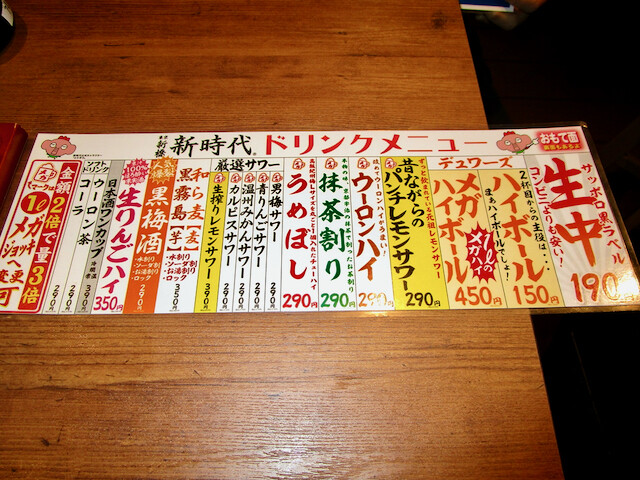 新橋
新時代 ドリンクメニュー
おもて面
サッポロ黒ラベル
生中
コンビニよりも安い!
190円
デュワーズ
2杯目からの主役は…
ハイボール
まぁハイボールでしょ!
150円
メガハイボール
1ℓのメガ!
450円
昔ながらのパンチレモンサワー
290円
ウーロンハイ
290円
抹茶割り
290円
うめぼし
290円
厳選サワー
男梅サワー
290円
青りんごサワー
290円
温州みかんサワー
290円
カルピスサワー
290円
生搾りレモンサワー
390円
和ら麦【麦】
黒霧島【芋】
・水割り
・ソーダ割
・お湯割り
・ロック
350円
黒梅酒
・水割り
・ソーダ割
・お湯割り
・ロック
290円
100%
生りんごハイ
350円
日本酒ワンカップ
390円
ソフトドリンク
ウーロン茶
290円
コーラ
290円
金額2倍で量3倍
マークは
1ℓメガジョッキ
変更可